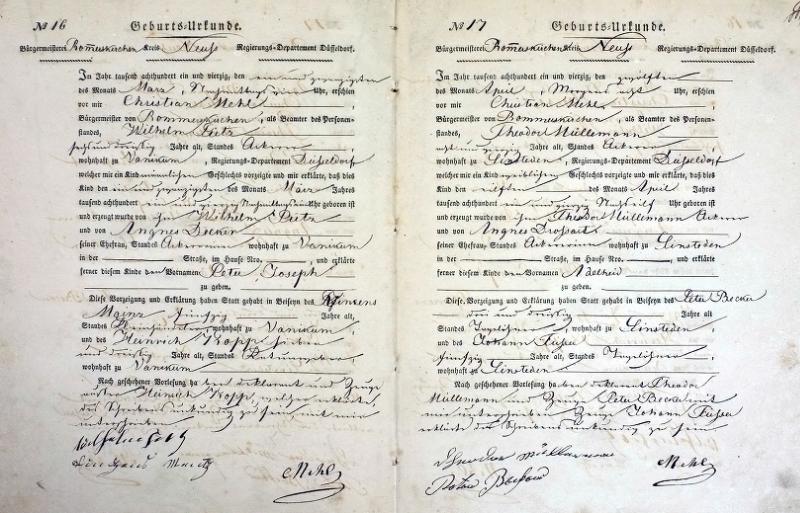 № 16 Geburts-Urkunde.
Bürgermeisterei Rommerskirchen Kreis Neuss Regierungs-Departement Düsseldorf.
Im Jahr tausend achthundert ein und vierzig, den ein und zwanzigsten
des Monats März, Nachmittags vier Uhr, erschien
vor mir Christian Mehl
Bürgermeister von Rommerskirchen, als Beamter des Personen-
standes, Wilhelm
sechs und dreißig Jahre alt, Standes Ackerer
wohnhaft zu Vanikum, Regierungs-Departement Düsseldorf
welcher mir ein Kind männlichen Geschlechts vorzeigte und mir erklärte, daß dies
Kind den ein und zwanzigsten des Monats März Jahres
tausend achthundert ein und vierzig Nachmittags ein Uhr geboren ist
und erzeugt wurde von ihm Wilhelm
und von Angnes Decker
seiner Ehefrau, Standes Ackererin wohnhaft zu Vanikum
in der — Straße, im Hause Nro. —, und erklärte
ferner diesem Kinde den Vornamen Peter Joseph
zu geben.
Diese Vorzeigung und Erklärung haben Statt gehabt in Beiseyn des
fünfzig Jahre alt,
Standes wohnhaft zu Vanikum
und des Heinrich Kopp sieben
und dreißig Jahre alt, Standes
wohnhaft zu Vanikum
Nach geschehener Vorlesung haben deklarant und Zeuge
außer Heinrich Kopp, welcher erklärte,
des Schreibens unkundig zu sein, mit mir
unterschrieben
Mehl
№ 17 Geburts-Urkunde.
Bürgermeisterei Rommerskirchen Kreis Neuss Regierungs-Departement Düsseldorf.
Im Jahr tausend achthundert ein und vierzig, den zwölften
des Monats April, Morgens acht Uhr, erschien
vor mir Christian Mehl
Bürgermeister von Rommerskirchen, als Beamter des Personen-
standes, Theodor Müllemann
acht und dreißig Jahre alt, Standes Ackerer
wohnhaft zu Sinsteden, Regierungs-Departement Düsseldorf
welcher mir ein Kind weiblichen Geschlechts vorzeigte und mir erklärte, daß dies
Kind den eilften des Monats April Jahres
tausend achthundert ein und vierzig Nachts eilf Uhr geboren ist
und erzeugt wurde von ihm Theodor Müllemann Ackerer
und von Angnes
seiner Ehefrau, Standes Ackererin wohnhaft zu Sinsteden
in der — Straße, im Hause Nro. —, und erklärte
ferner diesem Kinde den Vornamen Adelheid
zu geben.
Diese Vorzeigung und Erklärung haben Statt gehabt in Beiseyn des Peter Becker
drei und dreißig Jahre alt,
Standes Tagelöhner, wohnhaft zu Sinsteden
und des Johann
fünfzig Jahre alt, Standes Tagelöhner
wohnhaft zu Sinsteden
Nach geschehener Vorlesung haben deklarant Theodor
Müllemann und Zeuge Peter Becker mit
mir unterschrieben Zeuge Johann
erklärte des Schreibens unkundig zu sein
Theodor Müllemann
Mehl